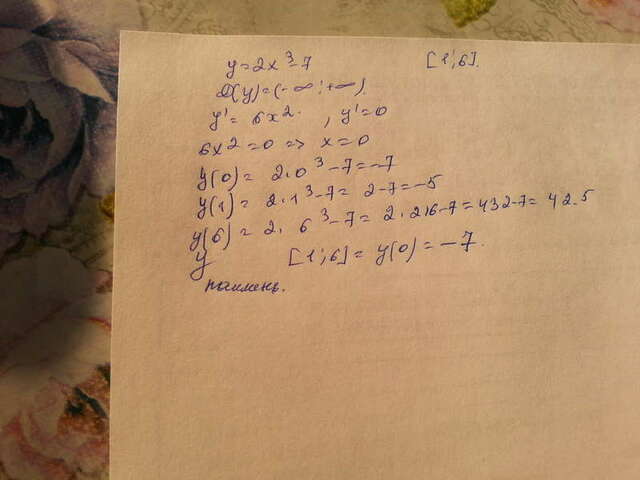 y=2x³-7 [1;6].
D(y)=(-∞;+∞).
y'= 6x². , y'=0
6x²=0 => x=0
y(0)= 2·0³-7=-7
y(1)= 2·1³-7= 2-7=-5
y(6)= 2·6³-7= 2·216-7=432-7= 425
y [1;6]= y(0)=-7.
наимень.